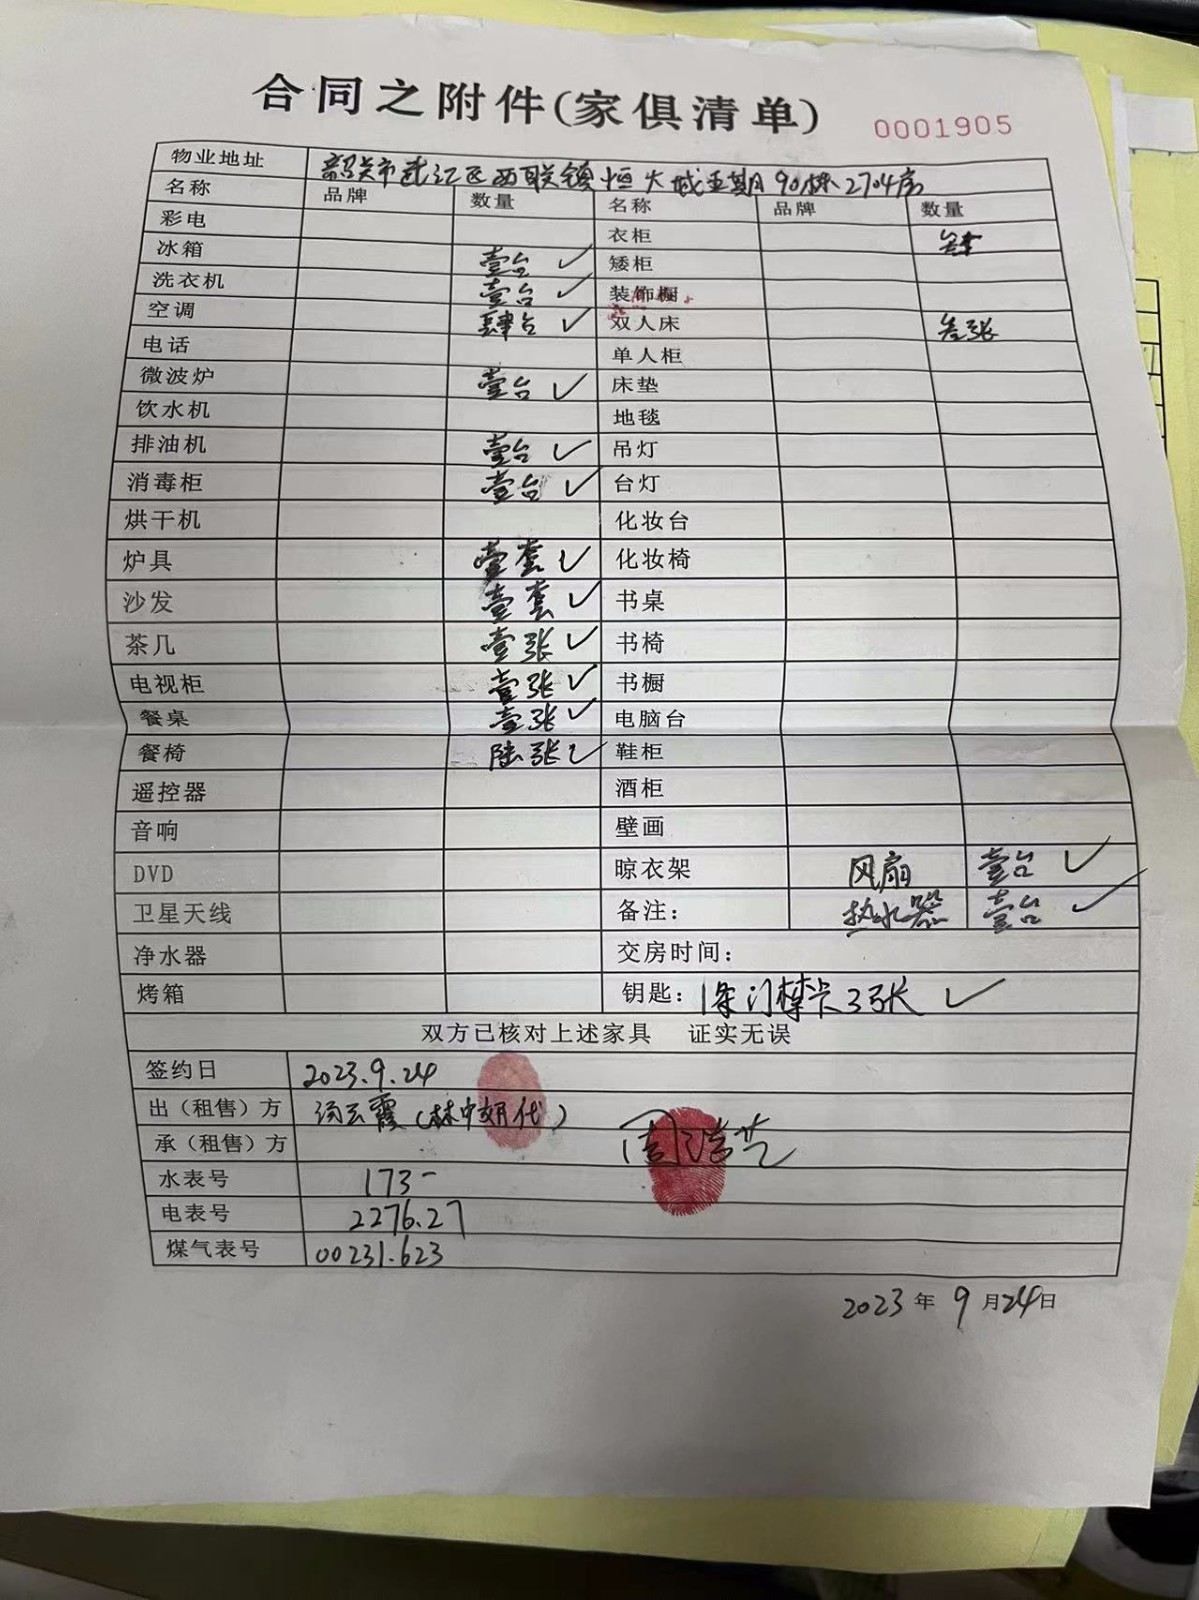 合同之附件(家俱清单)
0001905
物业地址 韶关市武江区西联镇恒大城五期90栋2704房
名称 品牌 数量 名称 品牌 数量
彩电 衣柜
冰箱 壹台 ✓ 矮柜
洗衣机 壹台 ✓ 装饰橱
空调 肆台 ✓ 双人床 叁张
电话 单人柜
微波炉 壹台 ✓ 床垫
饮水机 地毯
排油机 壹台 ✓ 吊灯
消毒柜 壹台 ✓ 台灯
烘干机 化妆台
炉具 壹套 ✓ 化妆椅
沙发 壹套 ✓ 书桌
茶几 壹张 ✓ 书椅
电视柜 壹张 ✓ 书橱
餐桌 壹张 ✓ 电脑台
餐椅 陆张 ✓ 鞋柜
遥控器 酒柜
音响 壁画
DVD 晾衣架 风扇 壹台 ✓
卫星天线 备注: 热水器 壹台 ✓
净水器 交房时间:
烤箱 钥匙: 1条门禁卡3张 ✓
双方已核对上述家具 证实无误
签约日 2023.9.24
出（租售）方 汤云霞(林中娟代)
承（租售）方 周
水表号 173-
电表号 2276.27
煤气表号 00231.623
2023年9月24日